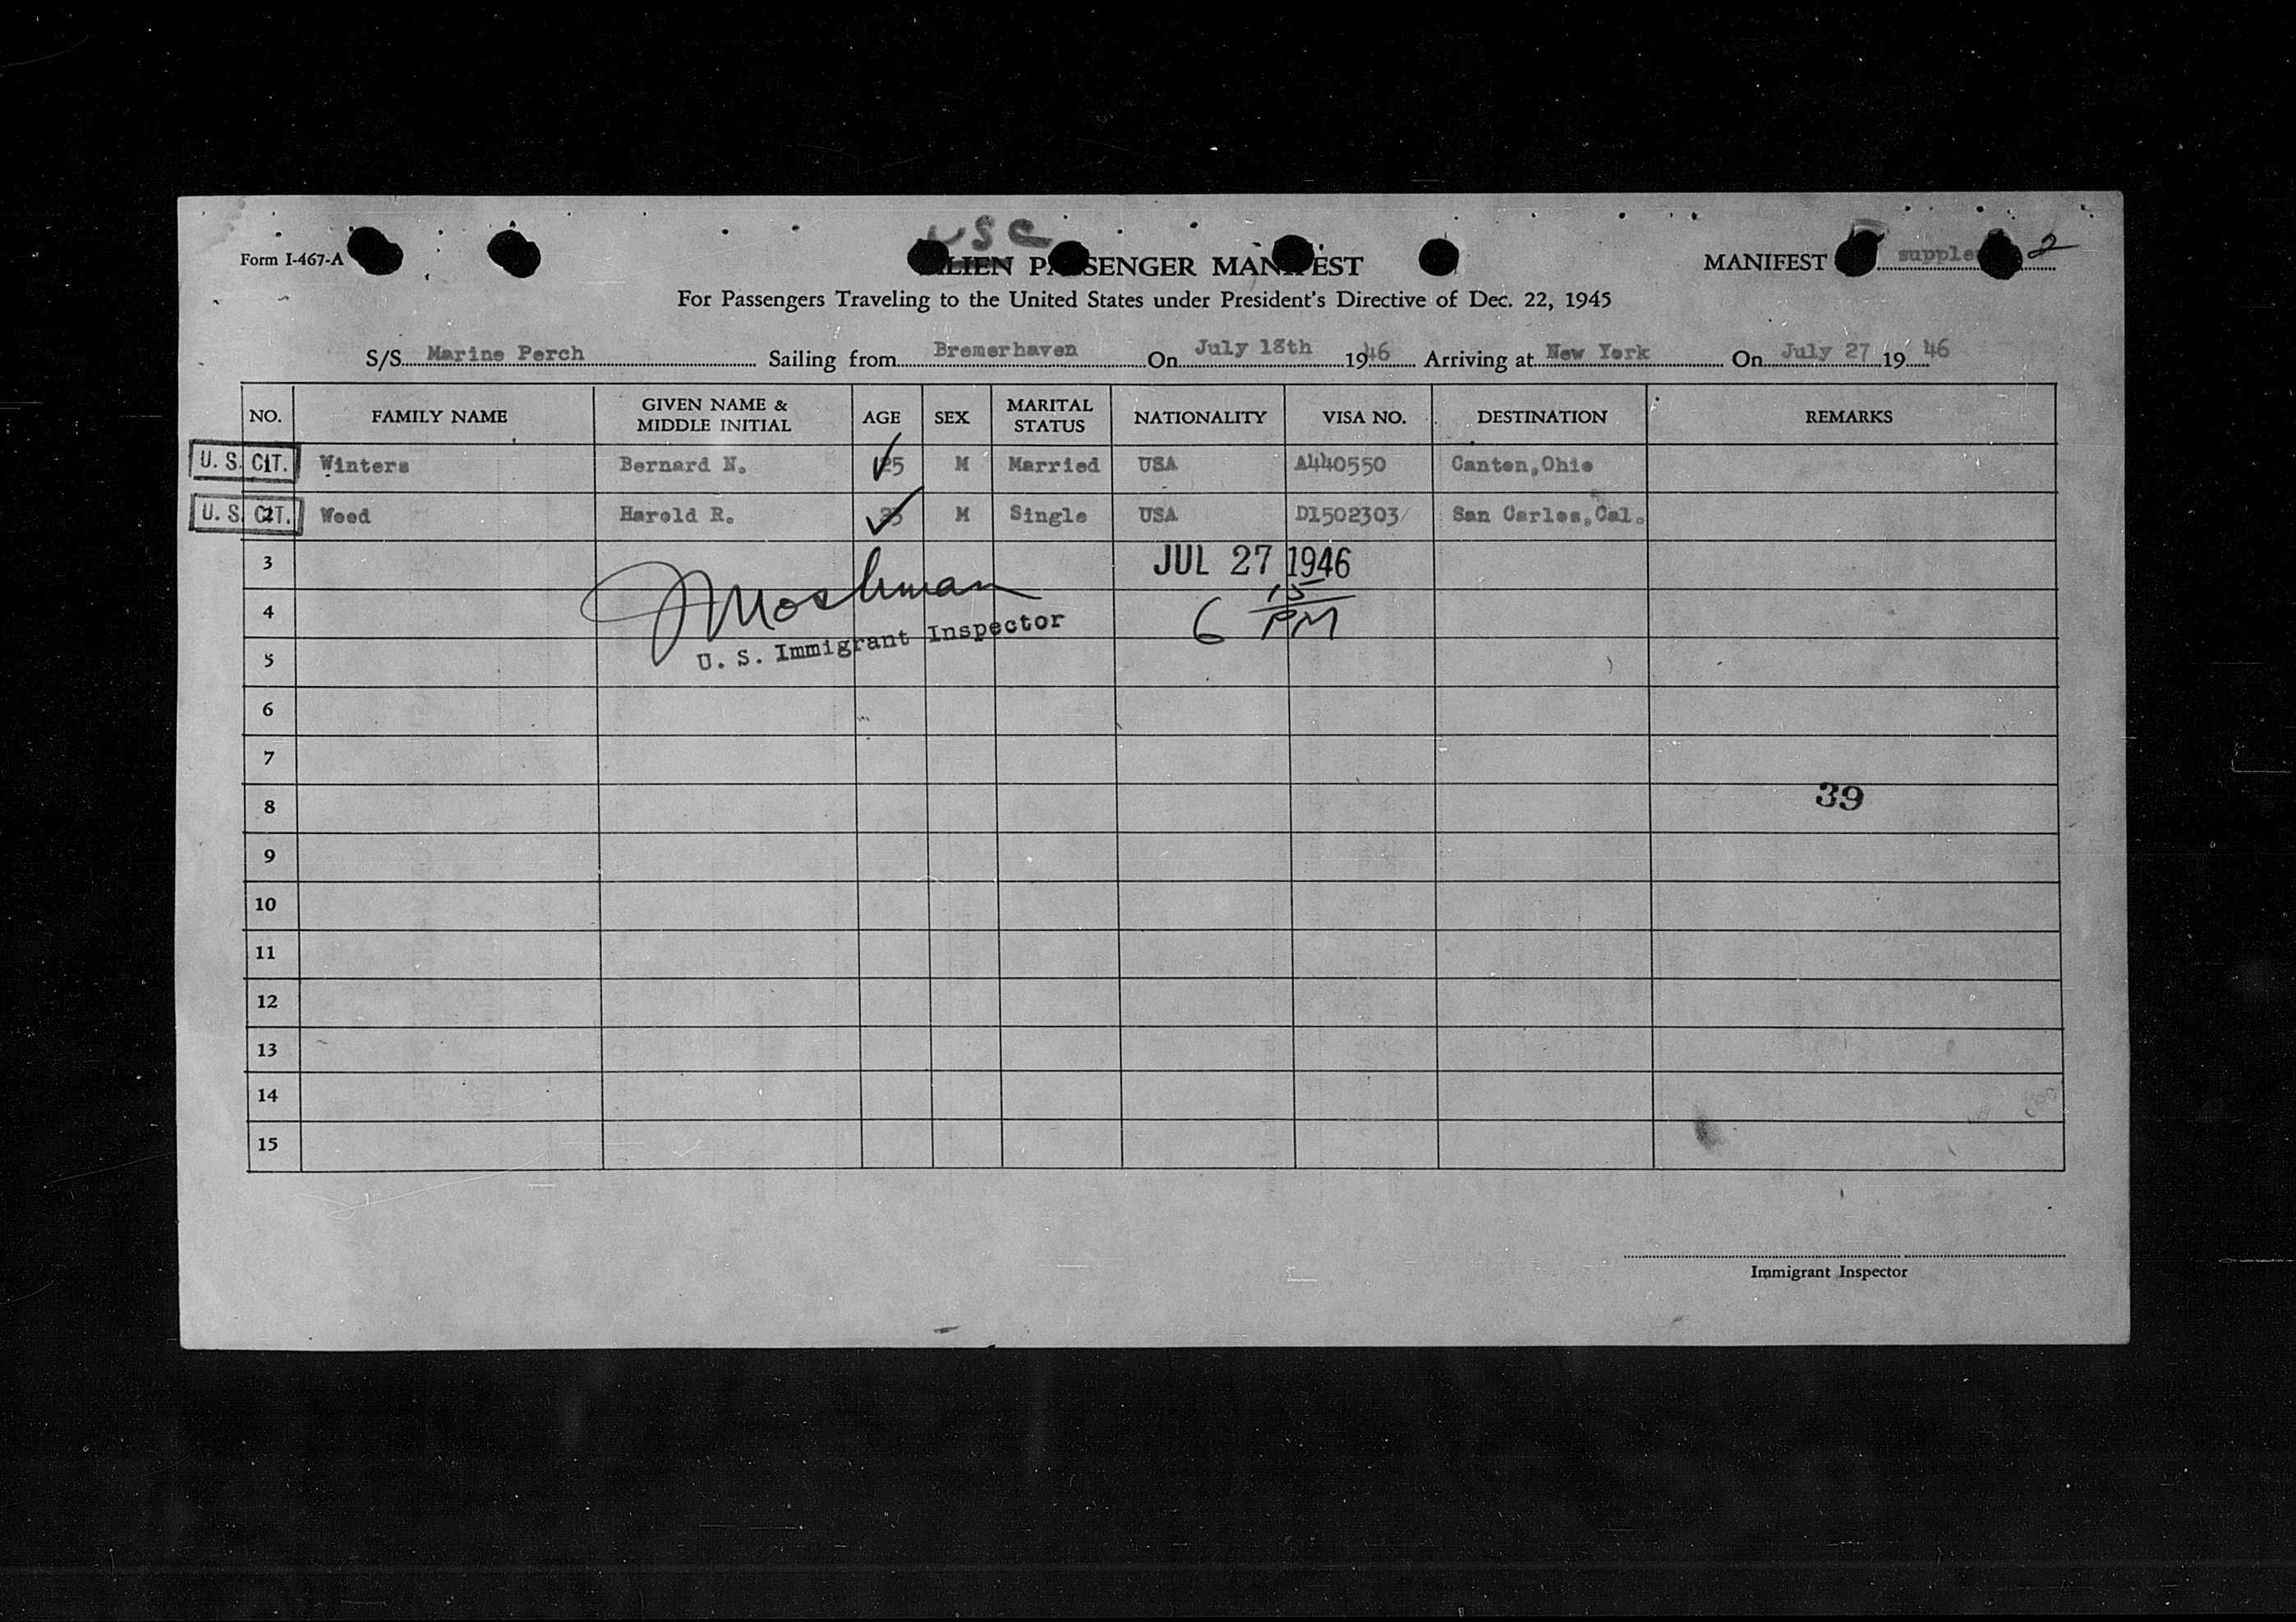 USC
Form I-467-A ALIEN PASSENGER MANIFEST MANIFEST supple 2
For Passengers Traveling to the United States under President's Directive of Dec. 22, 1945
S/S Marine Perch Sailing from Bremerhaven On July 18th 1946 Arriving at New York On July 27 19 46
NO. FAMILY NAME GIVEN NAME & MIDDLE INITIAL AGE SEX MARITAL STATUS NATIONALITY VISA NO. DESTINATION REMARKS
U. S. CIT. 1 Winters Bernard N. 25 M Married USA A440550 Canton, Ohio
U. S. CIT. 2 Wood Harold R. M Single USA D1502303 San Carlos, Cal.
3 JUL 27 1946
4 Moshman 6 15 PM
U. S. Immigrant Inspector
5
6
7
8 39
9
10
11
12
13
14
15
Immigrant Inspector